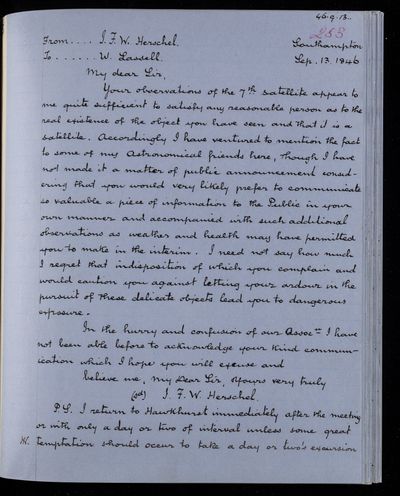 46.9.13..
253
From.... J. F. W. Herschel.
Southampton
To....... W. Lassell.
Sep. 13. 1846
My dear Sir,
Your observations of the 7th satellite appear to
me quite sufficient to satisfy any reasonable person as to the
real existence of the object you have seen and that it is a
satellite. Accordingly I have ventured to mention the fact
to some of my Astronomical friends here, though I have
not made it a matter of public announcement consid-
ering that you would very likely prefer to communicate
so valuable a piece of information to the Public in your
own manner and accompanied with such additional
observations as weather and health may have permitted
you to make in the interim. I need not say how much
I regret that indisposition of which you complain and
would caution you against letting your ardour in the
pursuit of these delicate objects lead you to dangerous
exposure.
In the hurry and confusion of our Assocn I have
not been able before to acknowledge your kind commun-
ication which I hope you will excuse and
believe me, my Dear Sir, Yours very truly
(sd) J. F. W. Herschel.
P.S. I return to Hawkhurst immediately after the meeting
or with only a day or two of interval unless some great
N. temptation should occur to take a day or two's excursion